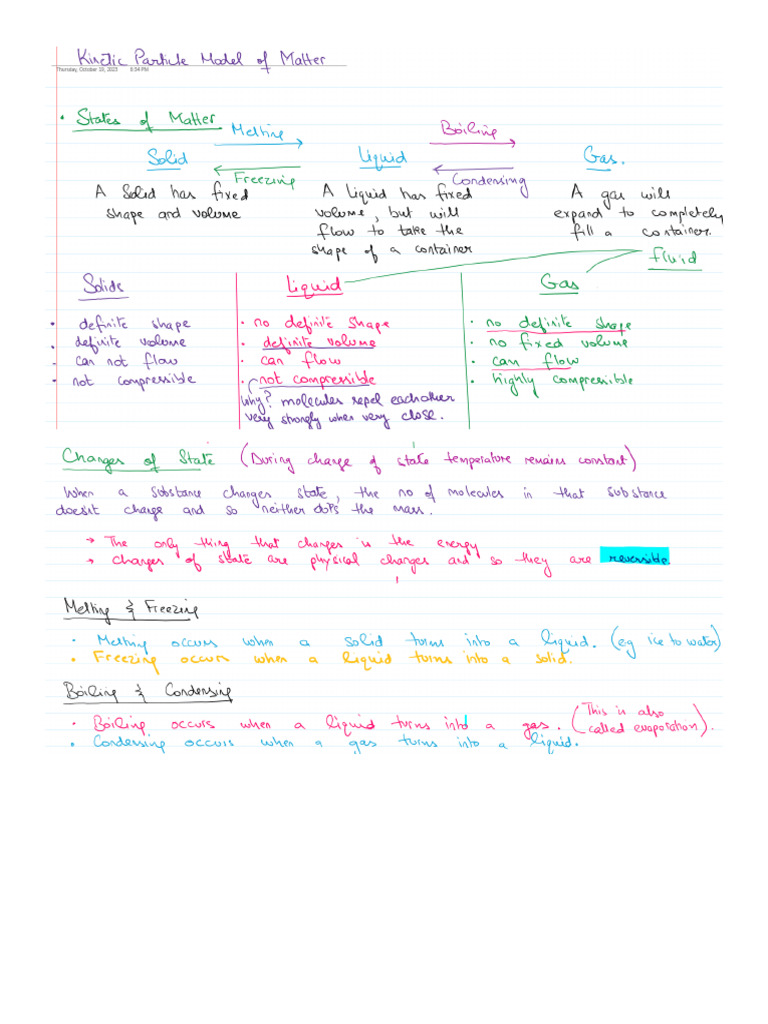 Kinetic Particle Model of Matter
Thursday, October 19, 2023 6:34 PM
• States of Matter
Melting Boiling
Solid Liquid Gas.
Freezing Condensing
A Solid has fixed
shape and volume
A Liquid has fixed
volume, but will
flow to take the
shape of a container
A gas will
expand to completely
fill a container.
fluid
Solids
• definite shape
• definite volume
• can not flow
• not compressible
Liquid
• no definite shape
• definite volume
• can flow
• not compressible
Why? molecules repel eachother
very strongly when very close.
Gas
• no definite shape
• no fixed volume
• can flow
• highly compressible
Changes of State (During change of state temperature remains constant)
When a substance changes state, the no of molecules in that substance
doesnt change and so neither does the mass.
→ The only thing that changes is the energy
→ changes of state are physical changes and so they are reversible
Melting & Freezing
• Melting occurs when a solid turns into a liquid. (eg ice to water)
• Freezing occurs when a liquid turns into a solid.
Boiling & Condensing
• Boiling occurs when a liquid turns into a gas. (This is also called evaporation).
• Condensing occurs when a gas turns into a liquid.